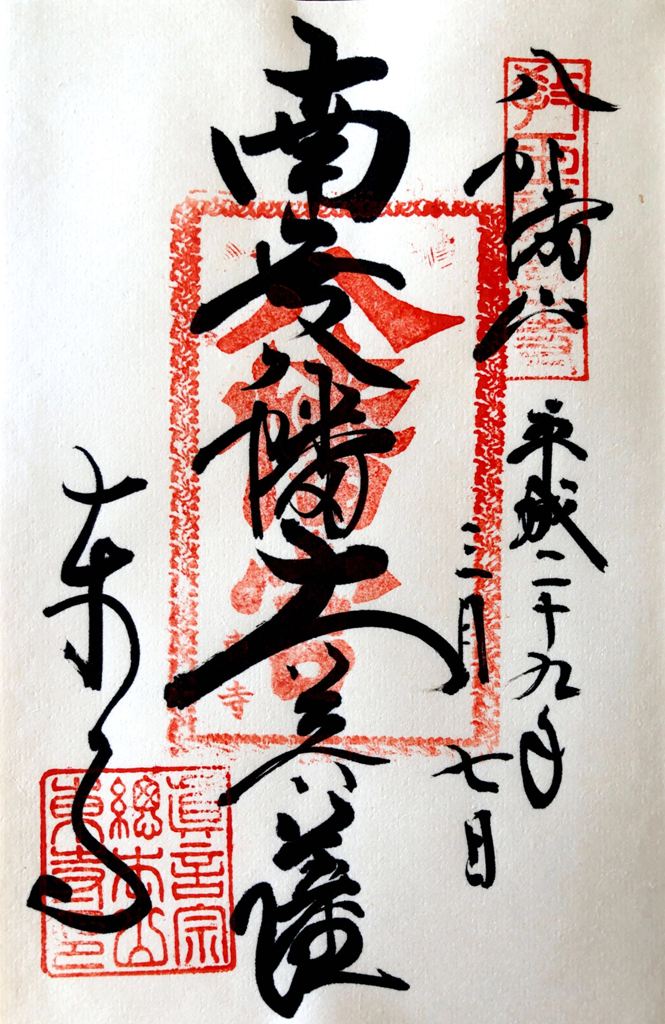 八幡山
平成二十九年
三月
七日
南無八幡大菩薩
八幡宮
寺
東寺
眞言宗
總本山
東寺印